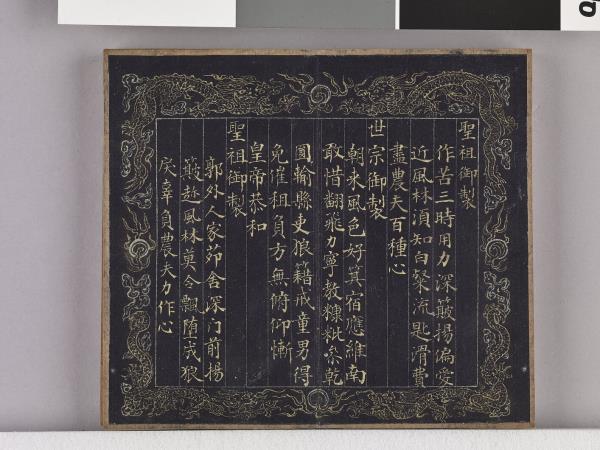 聖祖御製
作苦三時用力深簸揚偏愛
近風林湏知白粲流匙滑費
盡農夫百種心
世宗御製
朝來風色好箕宿應維南
敢惜翻飛力寧教糠粃叅乾
圓輸縣吏狼籍戒童男得
免催租負方無俯仰慚
皇帝恭和
聖祖御製
郭外人家茆舍深門前揚
簸趂風林莫令飄堕成狼
戾辜負農夫力作心